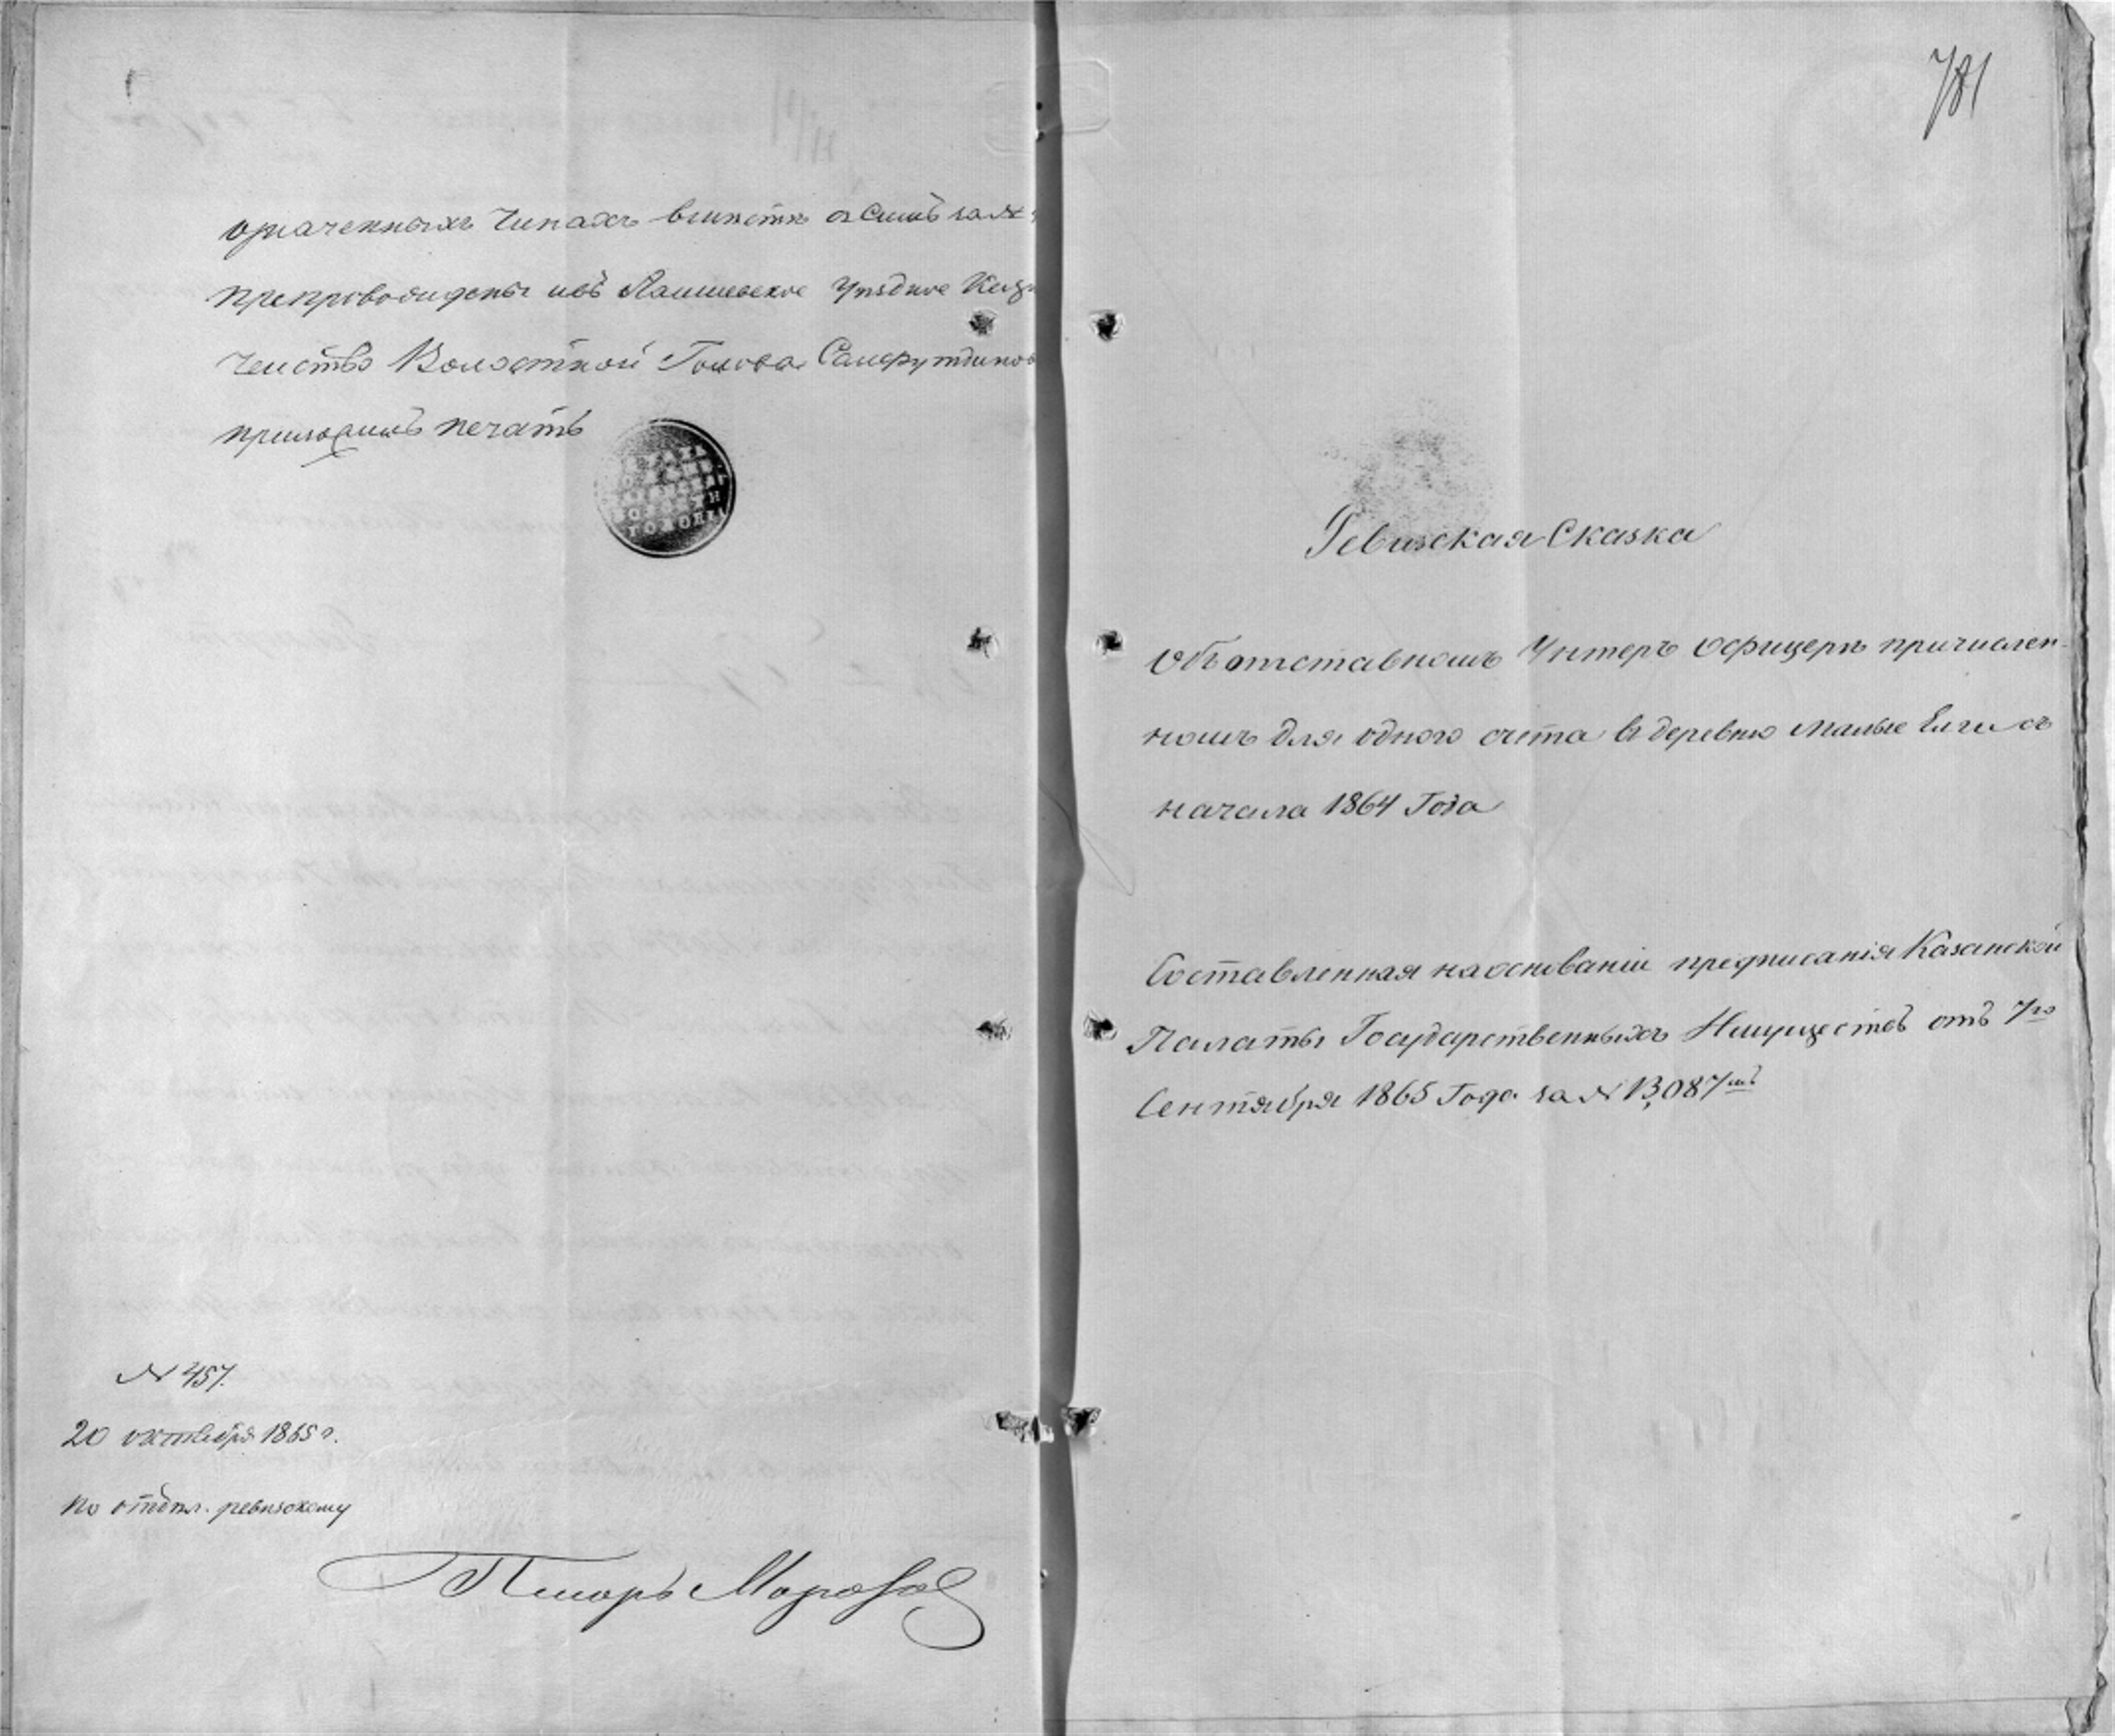 означенныхъ Чинахъ вмѣстѣ съ симъ за №
препровождены изъ Лаишевское Уѣздное Казна
чейство Волостной Голова Самерутдинов
приложилъ печать
№ 457.
20 октября 1865 г.
по отдѣл. ревизскому
Писарь Морозов
781
Ревизская Сказка
Объ отставномъ Унтеръ офицерѣ причислен-
номъ для одного счета въ деревню Малые Елги съ
начала 1864 Года
Составленная на основаніи предписанія Казанской
Палаты Государственныхъ Имуществъ отъ 7го
Сентября 1865 Года за № 13,087мъ